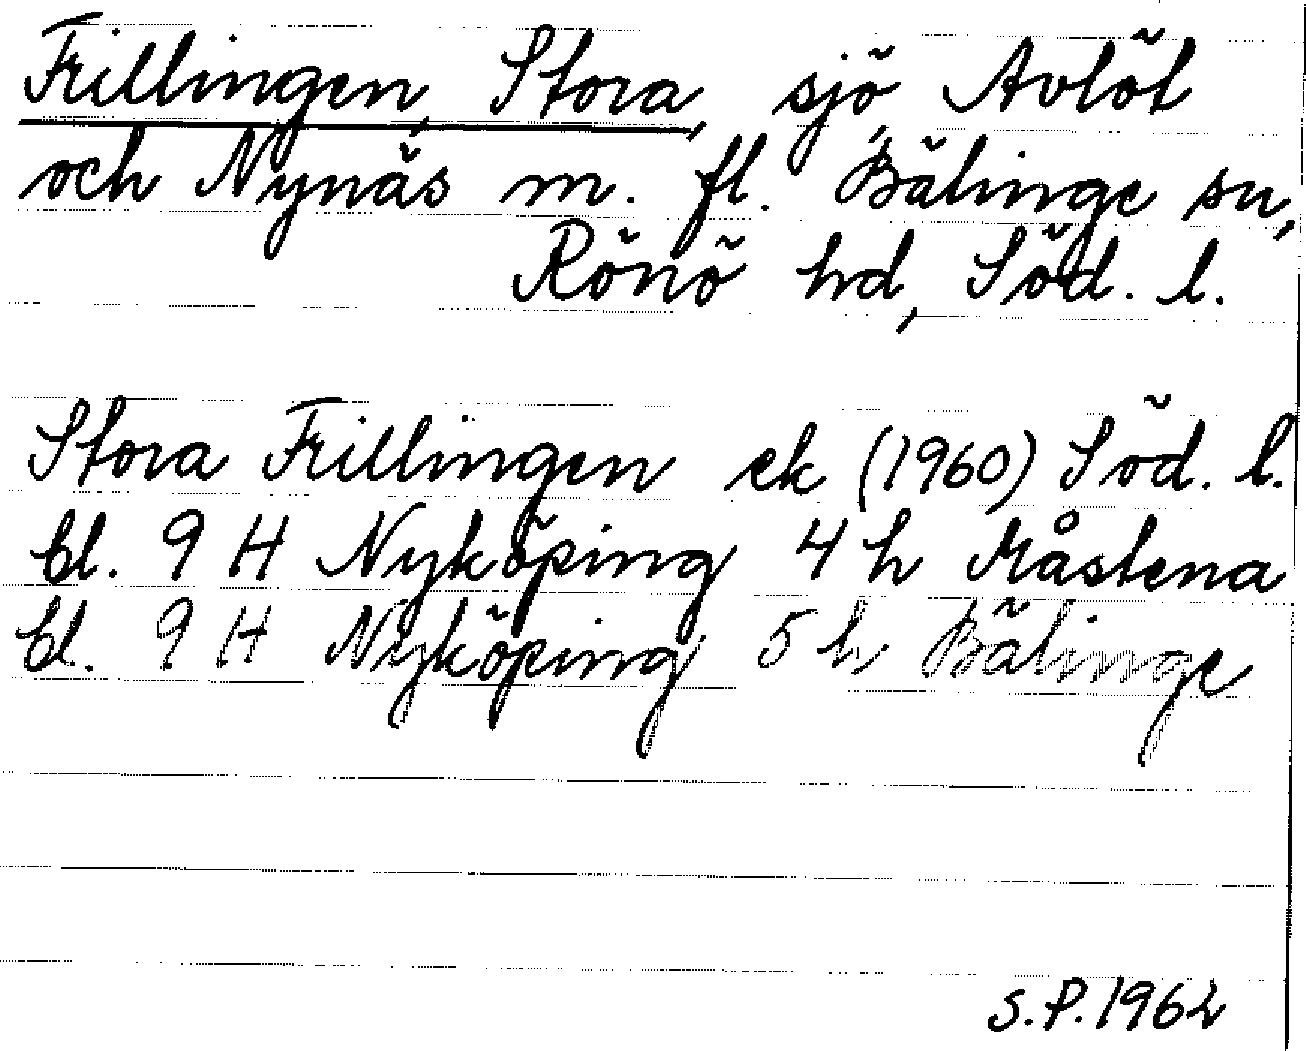 Frillingen, Stora, sjö, Avlöt
och Nynäs m. fl. Bälinge sn,
Rönö hd, Söd. l.
Stora Frillingen ek (1960) Söd. l.
bl. 9 H Nyköping 4 h Måstena
bl. 9 H Nyköping 5 h Bälinge
S.P. 1962